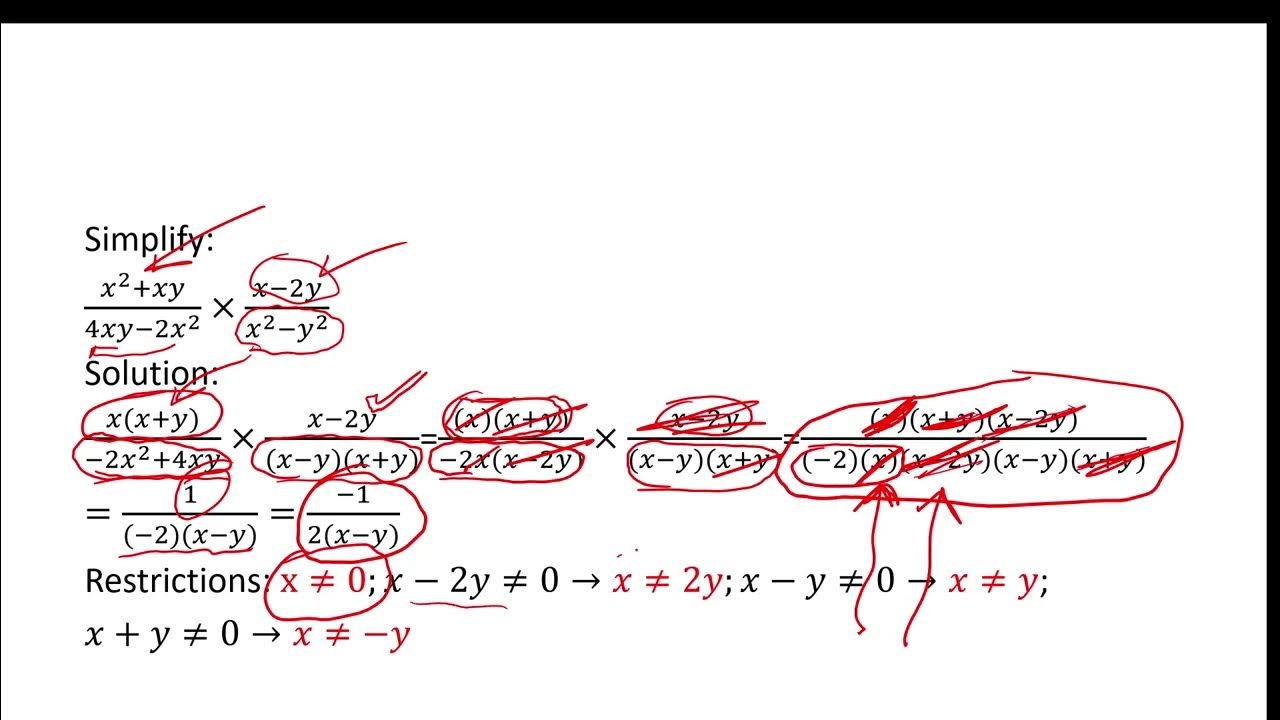 Simplify:
x²+xy / 4xy−2x² × x−2y / x²−y²
Solution:
x(x+y) / −2x²+4xy × x−2y / (x−y)(x+y) = (x)(x+y) / −2x(x−2y) × x−2y / (x−y)(x+y) = (x)(x+y)(x−2y) / (−2)(x)(x−2y)(x−y)(x+y)
= 1 / (−2)(x−y) = −1 / 2(x−y)
Restrictions: x ≠ 0; x − 2y ≠ 0 → x ≠ 2y; x − y ≠ 0 → x ≠ y;
x + y ≠ 0 → x ≠ −y